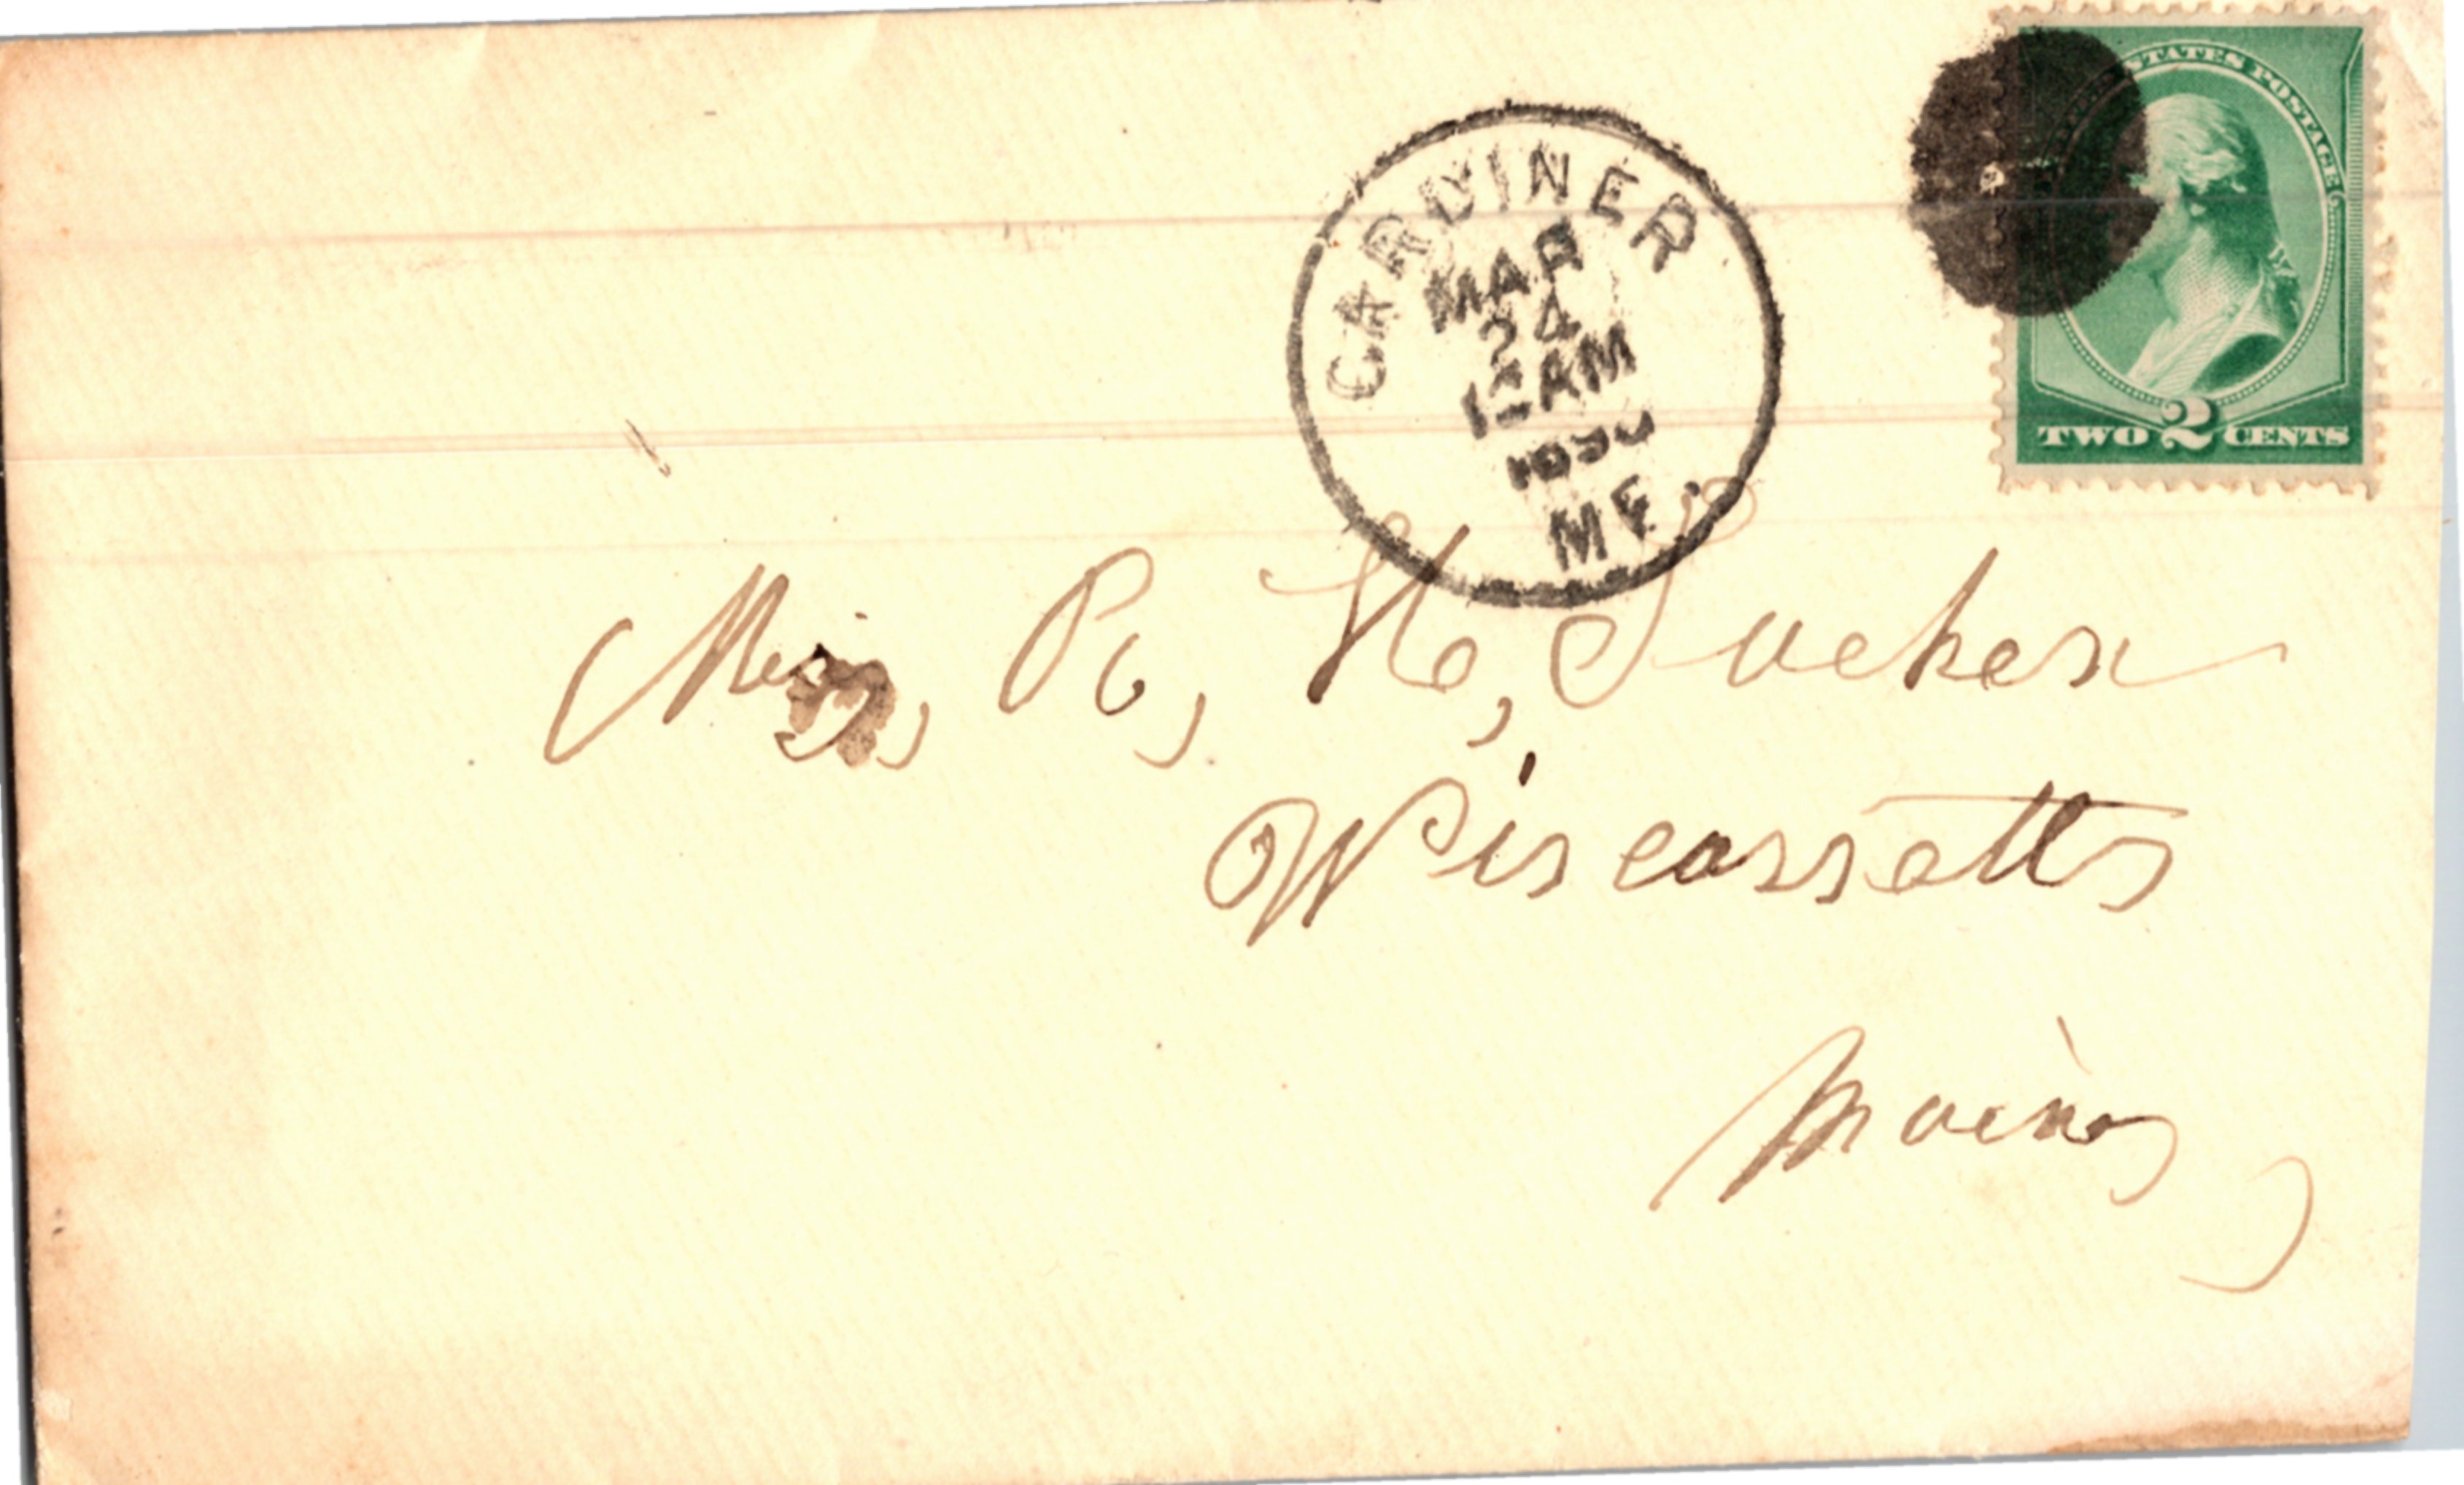 STATES POSTAGE
TWO 2 CENTS
GARDINER
MAR
24
12 AM
1890
ME.
Miss, R, H, Tucker
Wiscassetts
Maine,